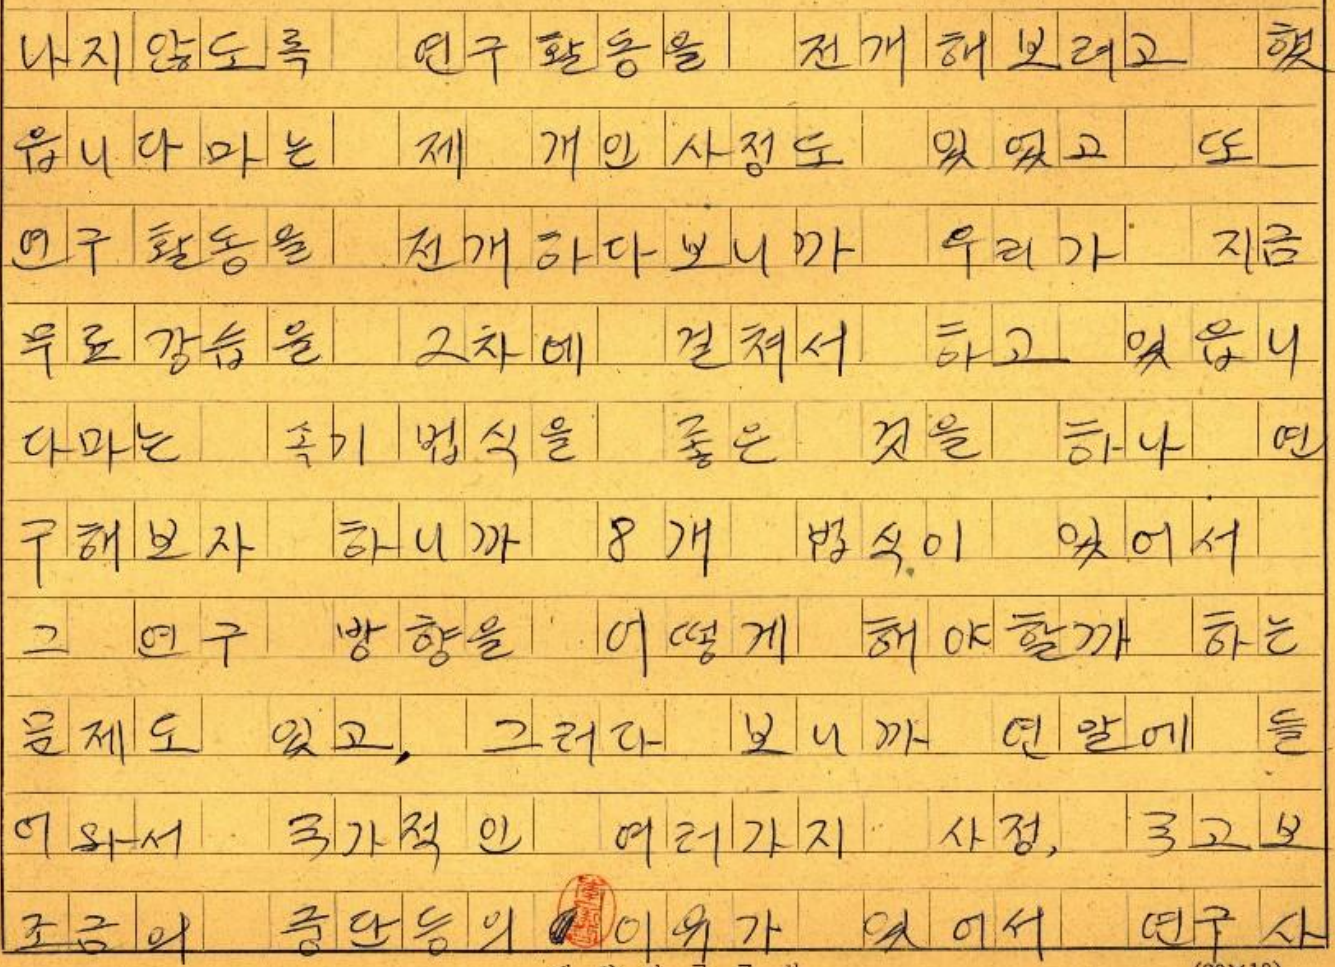 나지않도록 연구활동을 전개해보려고 했
읍니다마는 제 개인사정도 있었고 또
연구활동을 전개하다보니까 우리가 지금
무료강습을 2차에 걸쳐서 하고 있읍니
다마는 속기법식을 좋은 것을 하나 연
구해보자 하니까 8개 법식이 있어서
그 연구 방향을 어떻게 해야할까 하는
문제도 있고, 그러다 보니까 연말에 들
어와서 국가적인 여러가지 사정, 국고보
조금의 중단등의 이유가 있어서 연구사